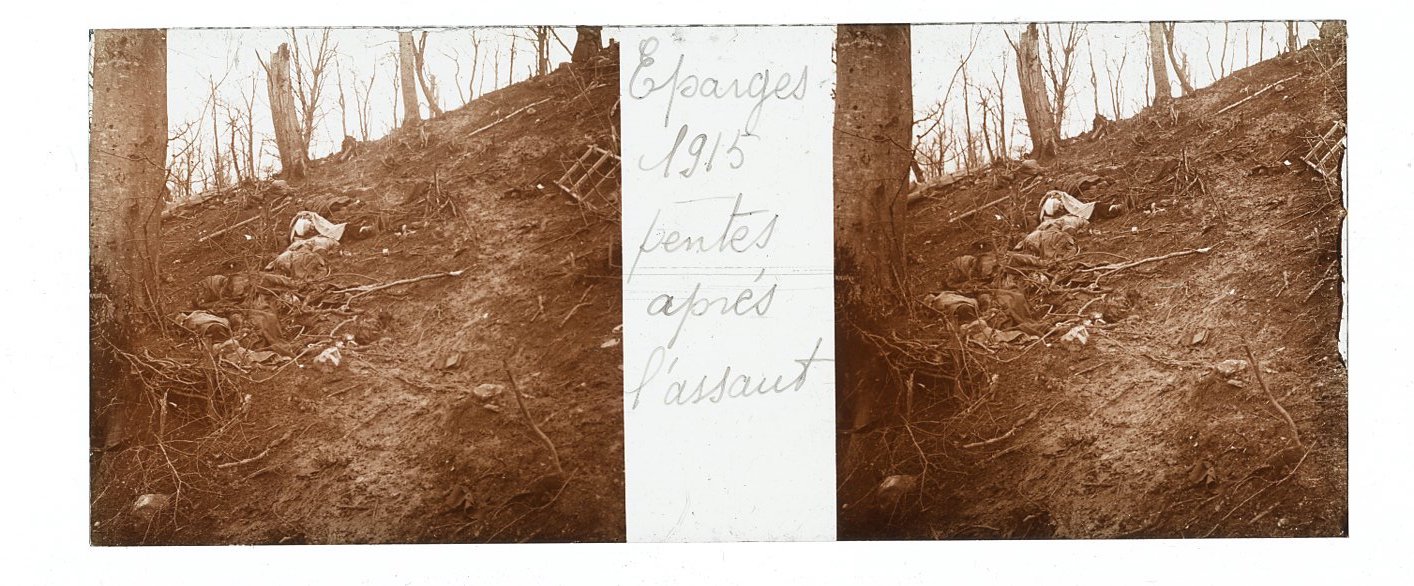 Eparges
1915
pentes
après
l'assaut